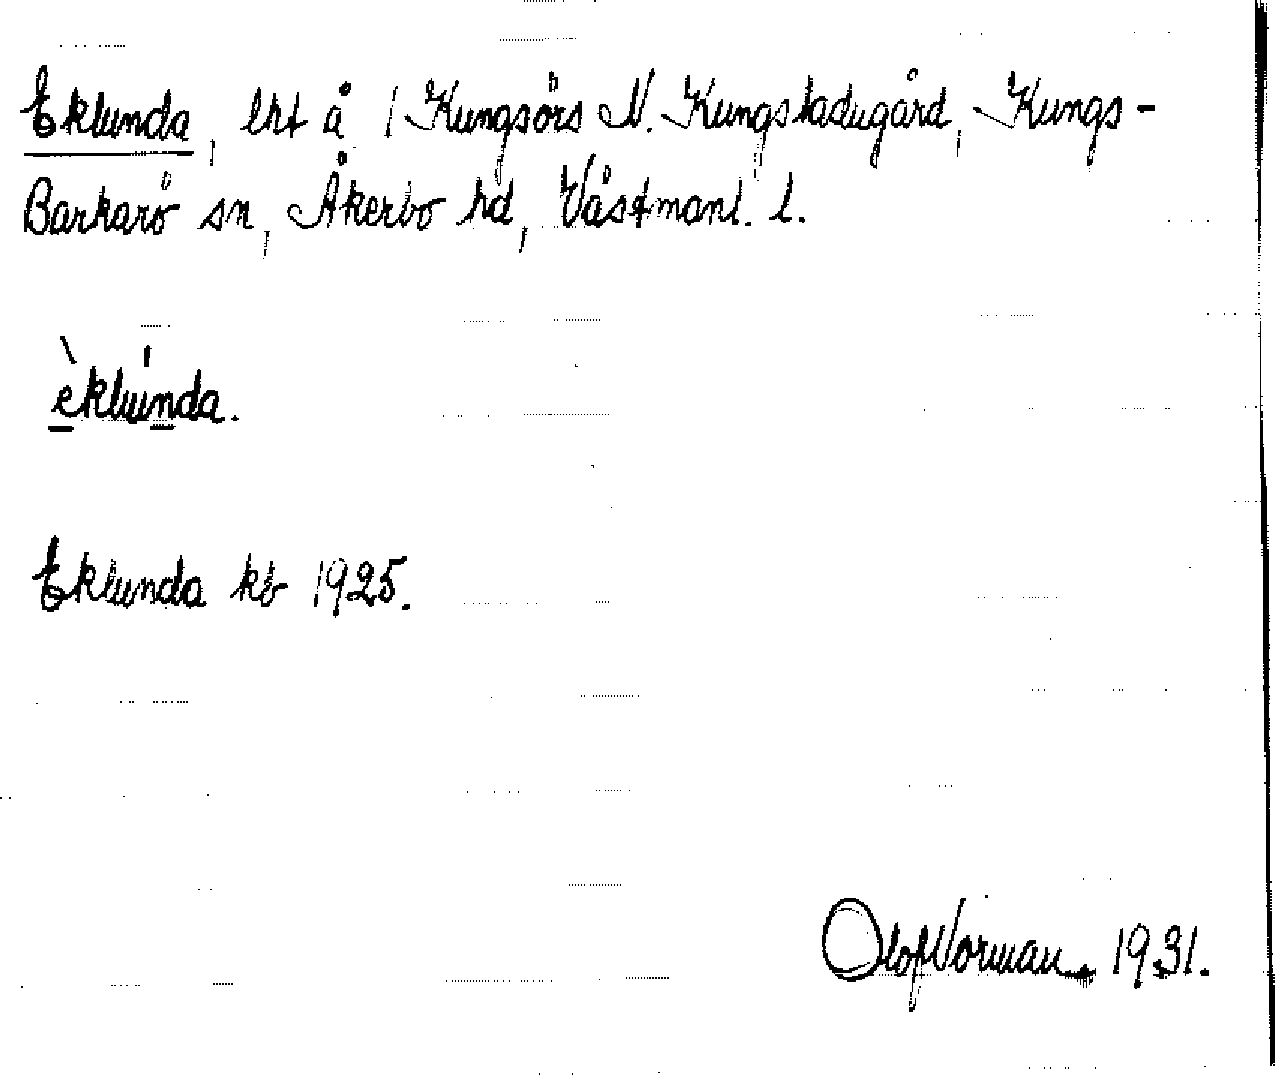 Eklunda, lht å 1 Kungsörs N. Kungsladugård, Kungs-
Barkarö sn, Åkerbo hd, Västmanl. l.
èklúnda.
Eklunda kb 1925.
Olof Norman 1931.